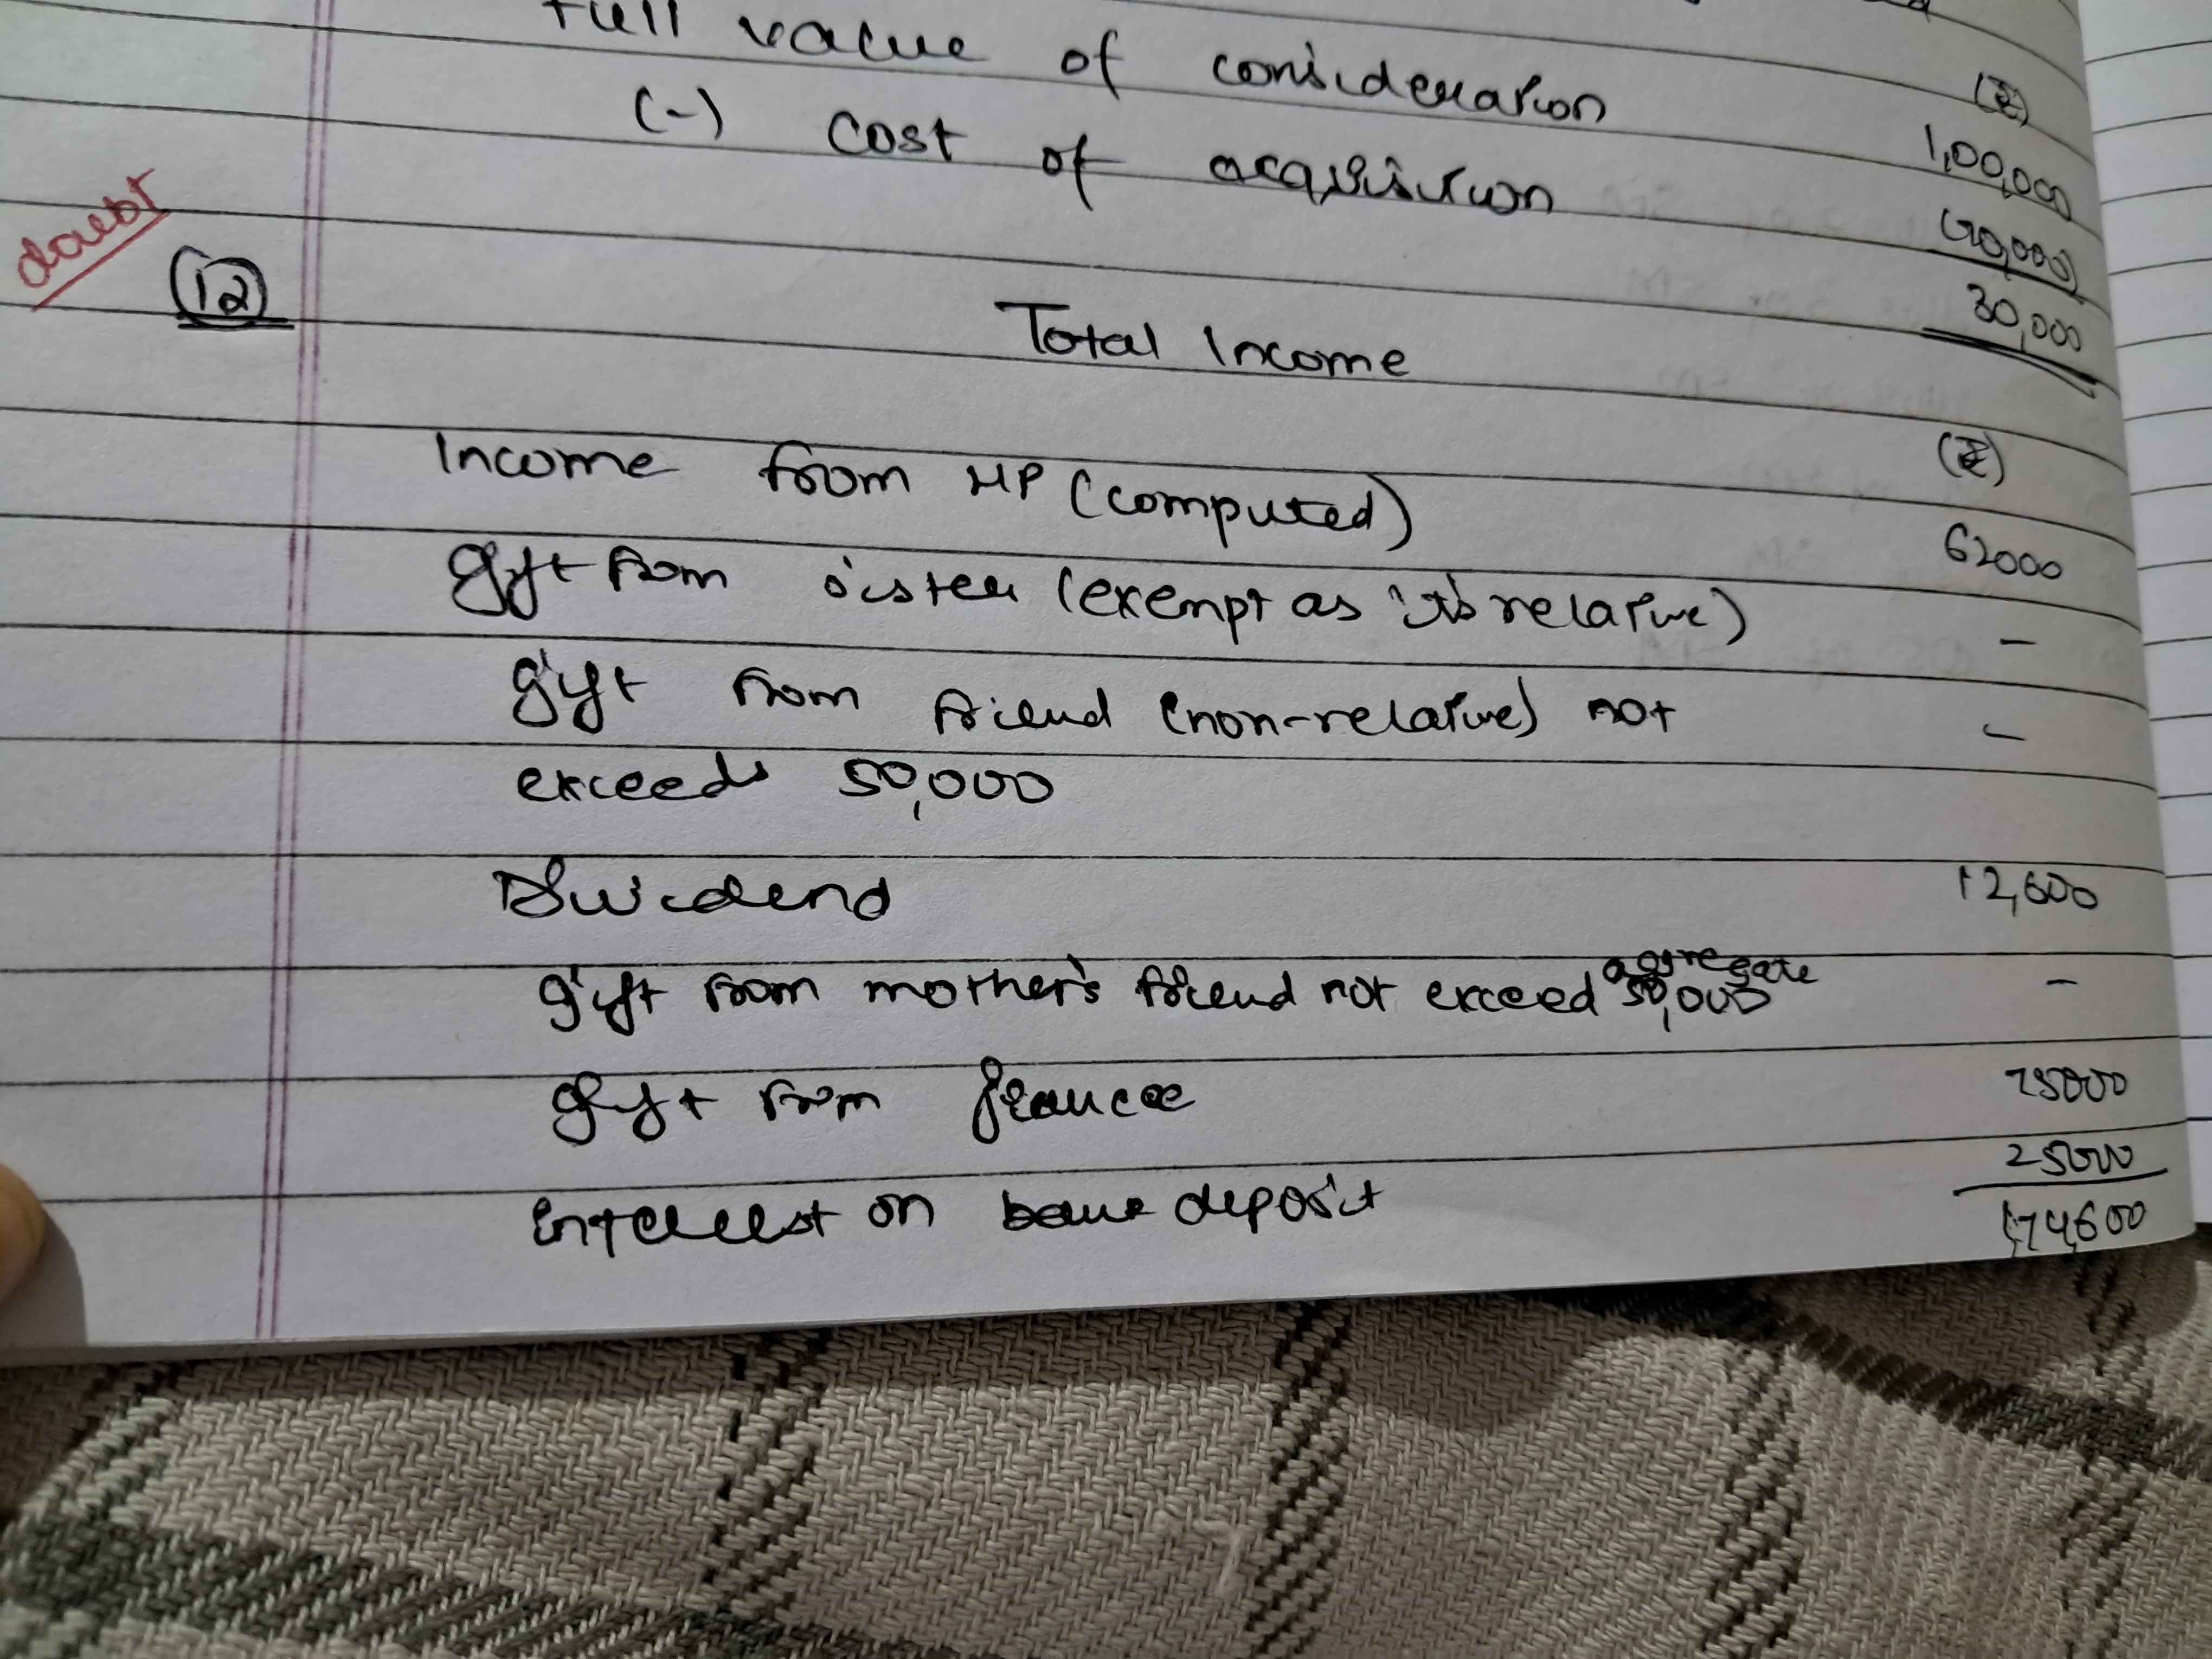 Full value of consideration (₹) 1,00,000
(-) Cost of acquisition (70,000)
30,000
doubt
(12) Total Income
(₹)
Income from HP (computed) 62000
Gift from sister (exempt as its relative) -
gift from friend (non-relative) not -
exceeds 50,000
Dividend 12,600
gift from mother's friend not exceed aggregate 50,000 -
gift from fiancee 75000
Interest on bank deposit 25000
1,74,600